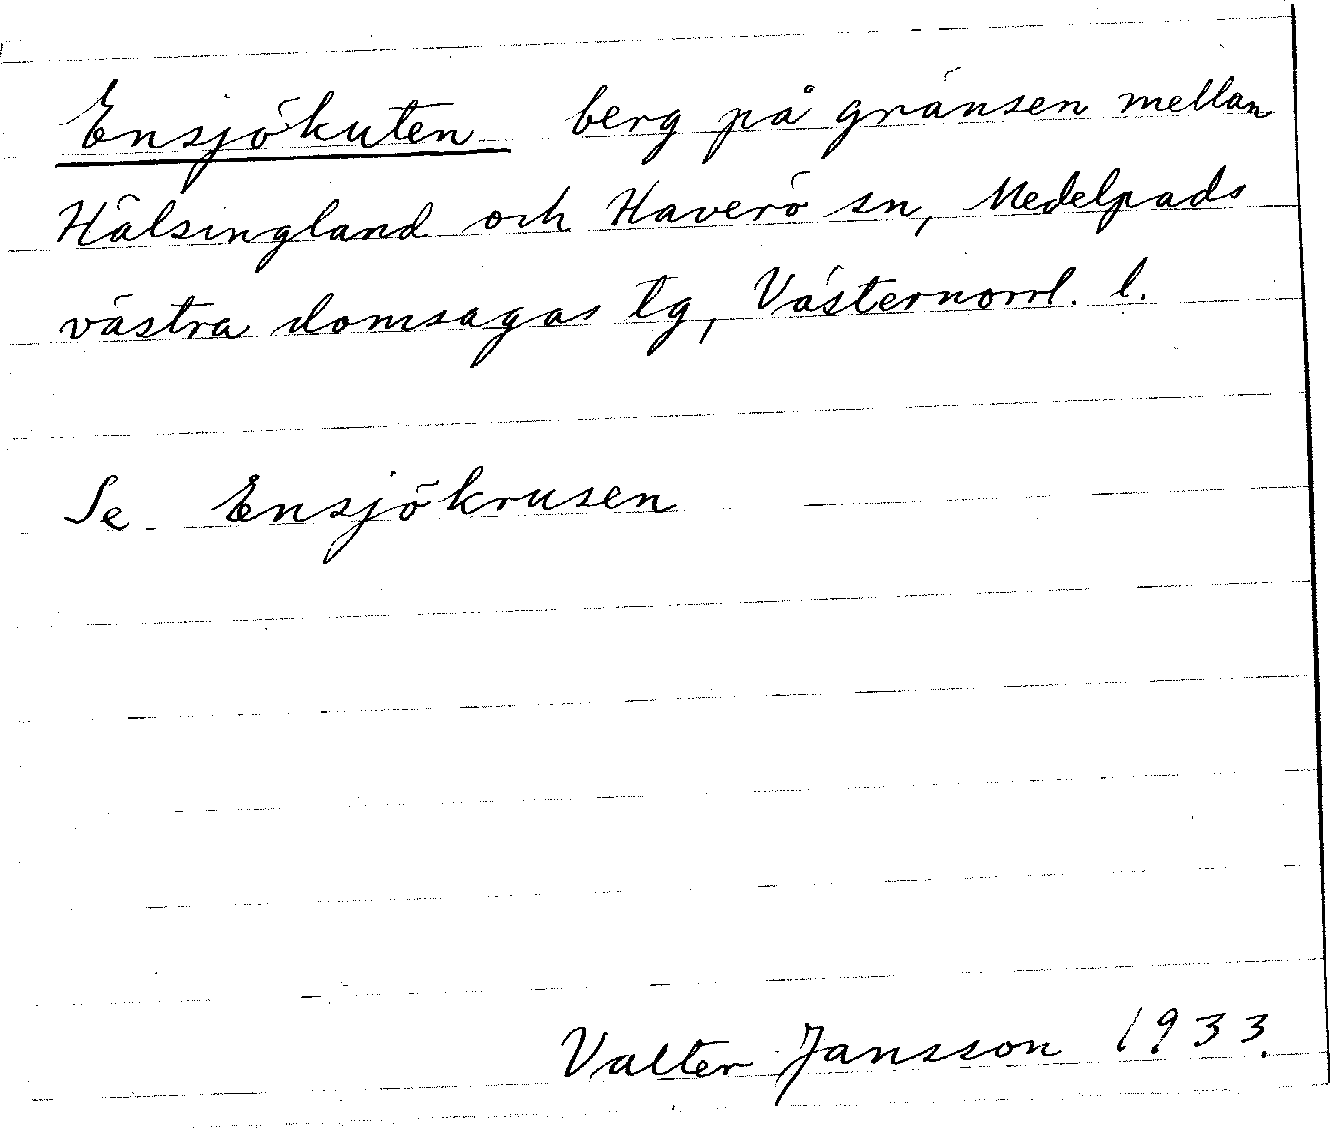 Ensjökuten berg på gränsen mellan
Hälsingland och Haverö sn, Medelpads
västra domsagas tg, Västernorrl. l.
Se Ensjökrusen
Valter Jansson 1933.